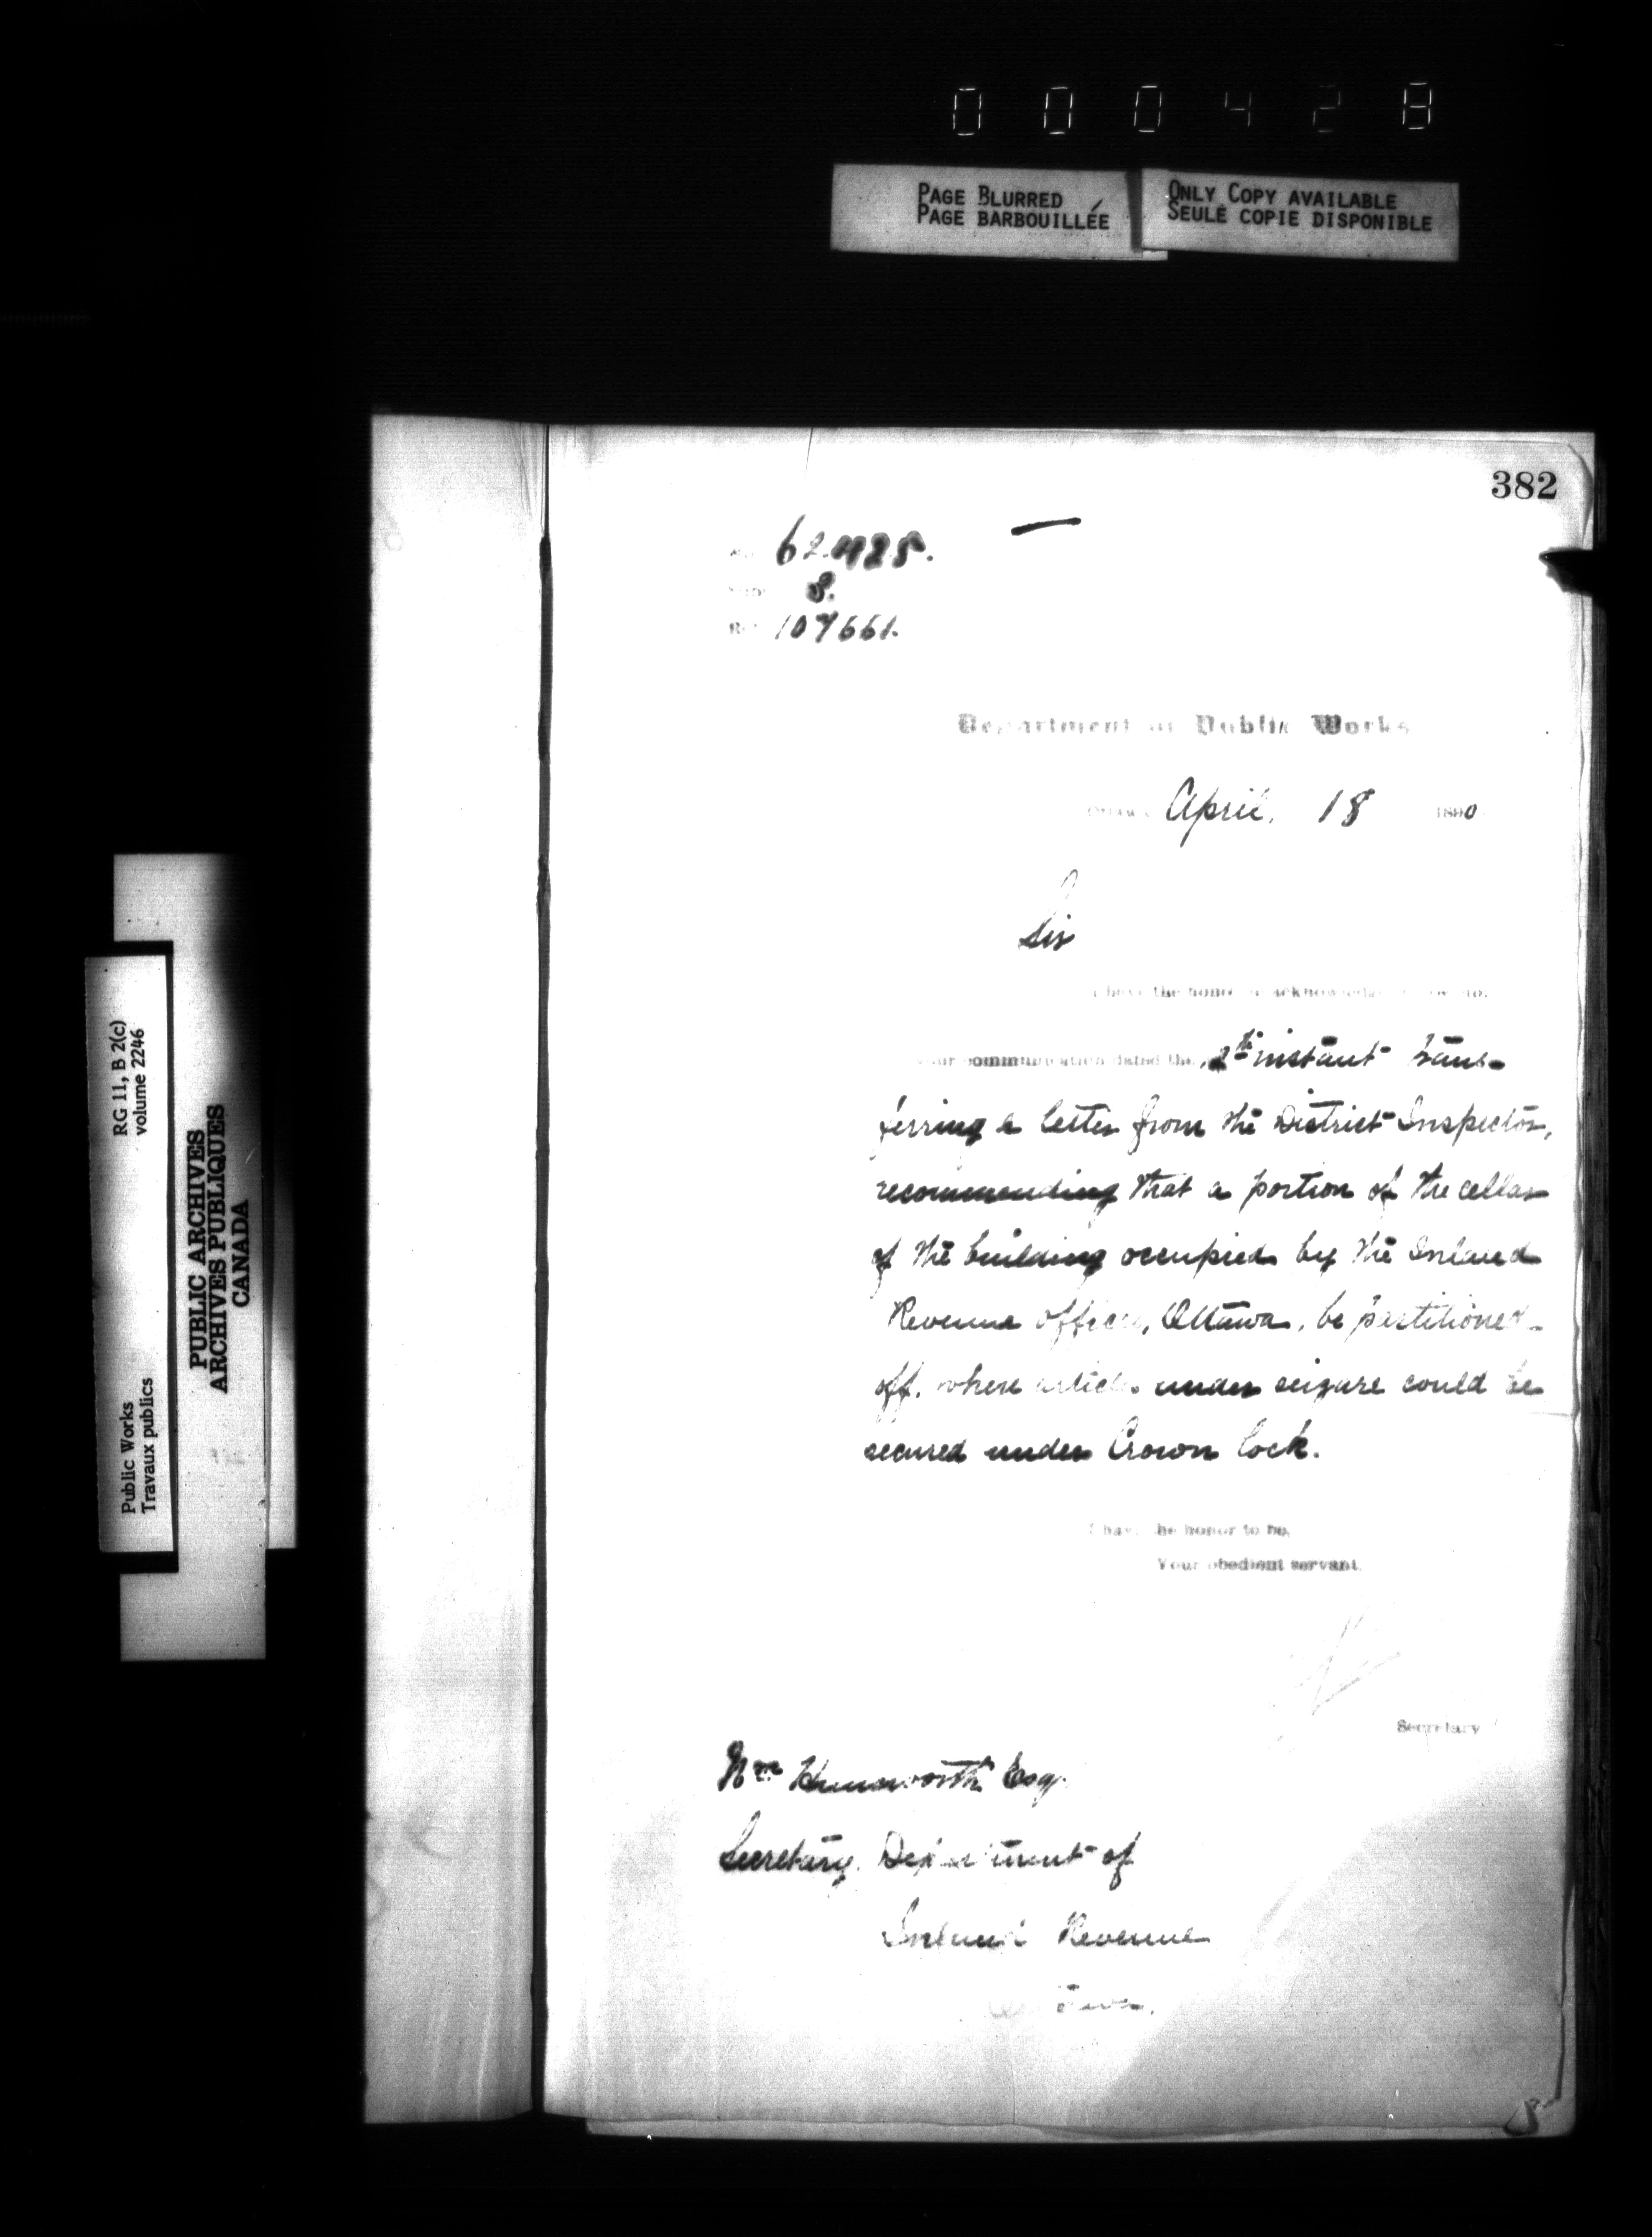 000428
PAGE BLURRED
PAGE BARBOUILLÉE
ONLY COPY AVAILABLE
SEULE COPIE DISPONIBLE
382
62425.
8.
107661.
Department of Public Works
Ottawa, April, 18 1890
Sir
I have the honor to acknowledge
your communication dated the instant trans-
ferring a letter from the District Inspector,
recommending that a portion of the cellar
of the building occupied by the Inland
Revenue offices, Ottawa, be partitioned
off, where articles under seizure could be
secured under Crown lock.
I have the honor to be,
Your obedient servant,
Secretary
Wm Himsworth Esq.
Secretary, Department of
Inland Revenue
Ottawa.
RG 11, B 2(c)
volume 2246
Public Works
Travaux publics
PUBLIC ARCHIVES
ARCHIVES PUBLIQUES
CANADA